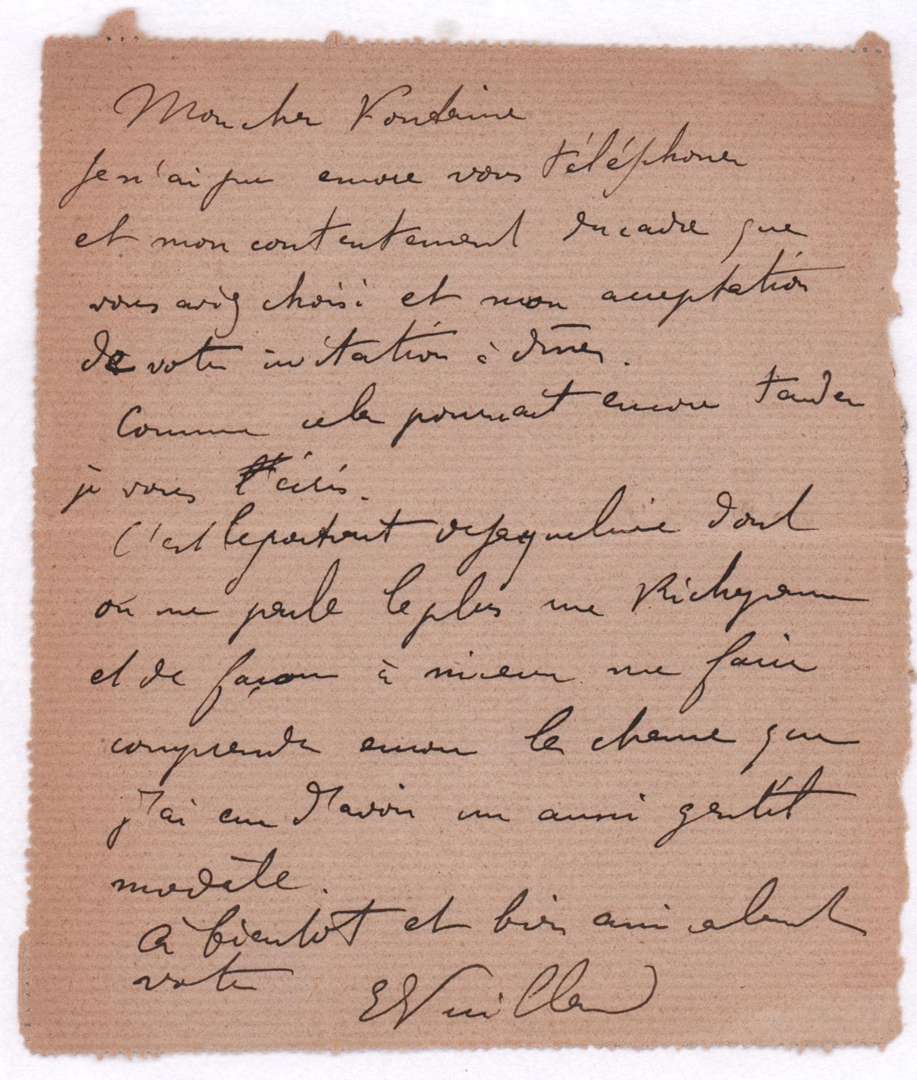 Mon cher Fontaine
Je n'ai pu encore vous téléphoner
et mon contentement du cadre que
vous avez choisi et mon acceptation
de votre invitation à dîner.
Comme cela pourrait encore tarder
je vous l'écris.
C'est le portrait de Jacqueline dont
on me parle le plus
et de façon à mieux me faire
comprendre encore la chance que
j'ai eue d'avoir un aussi gentil
modèle.
à bientôt et bien amicalement
votre
E Vuillard